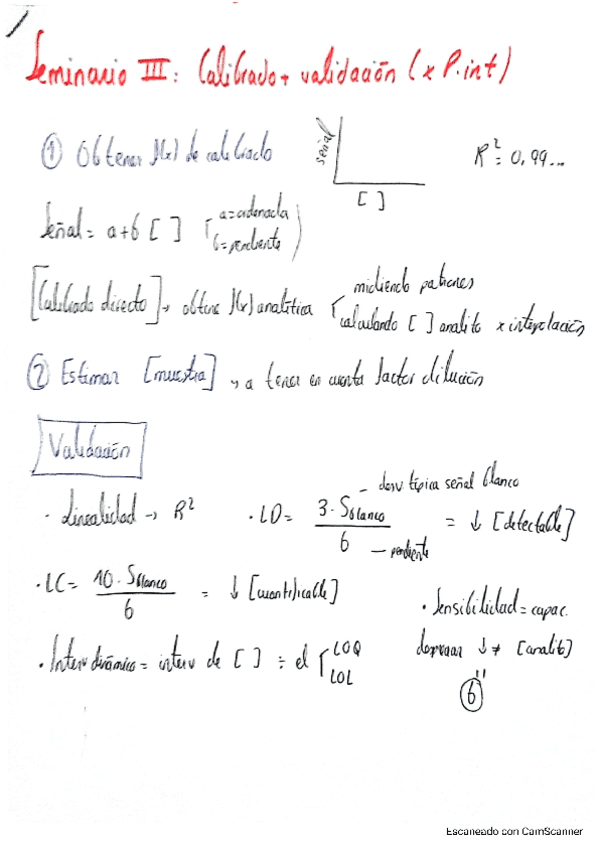 Seminario III: Calibrado + validación (x P.int)
① Obtener f(x) de calibrado
señal
[ ]
R² = 0,99...
Señal = a + b [ ]
a = ordenada
b = pendiente
[Calibrado directo] → obtener f(x) analítica
midiendo patrones
calculando [ ] analito x interpolación
② Estimar [muestra] → a tener en cuenta factor dilución
Validación
· Linealidad → R²
· LD = 3 · Sblanco / b = ↓ [detectable]
desv típica señal blanco
pendiente
· LC = 10 · Sblanco / b = ↓ [cuantificable]
· Sensibilidad = capac.
↓ ≠ [analit]
"
b
· Interv dinámico = interv de [ ] ÷ el
LOQ
LOL
Escaneado con CamScanner